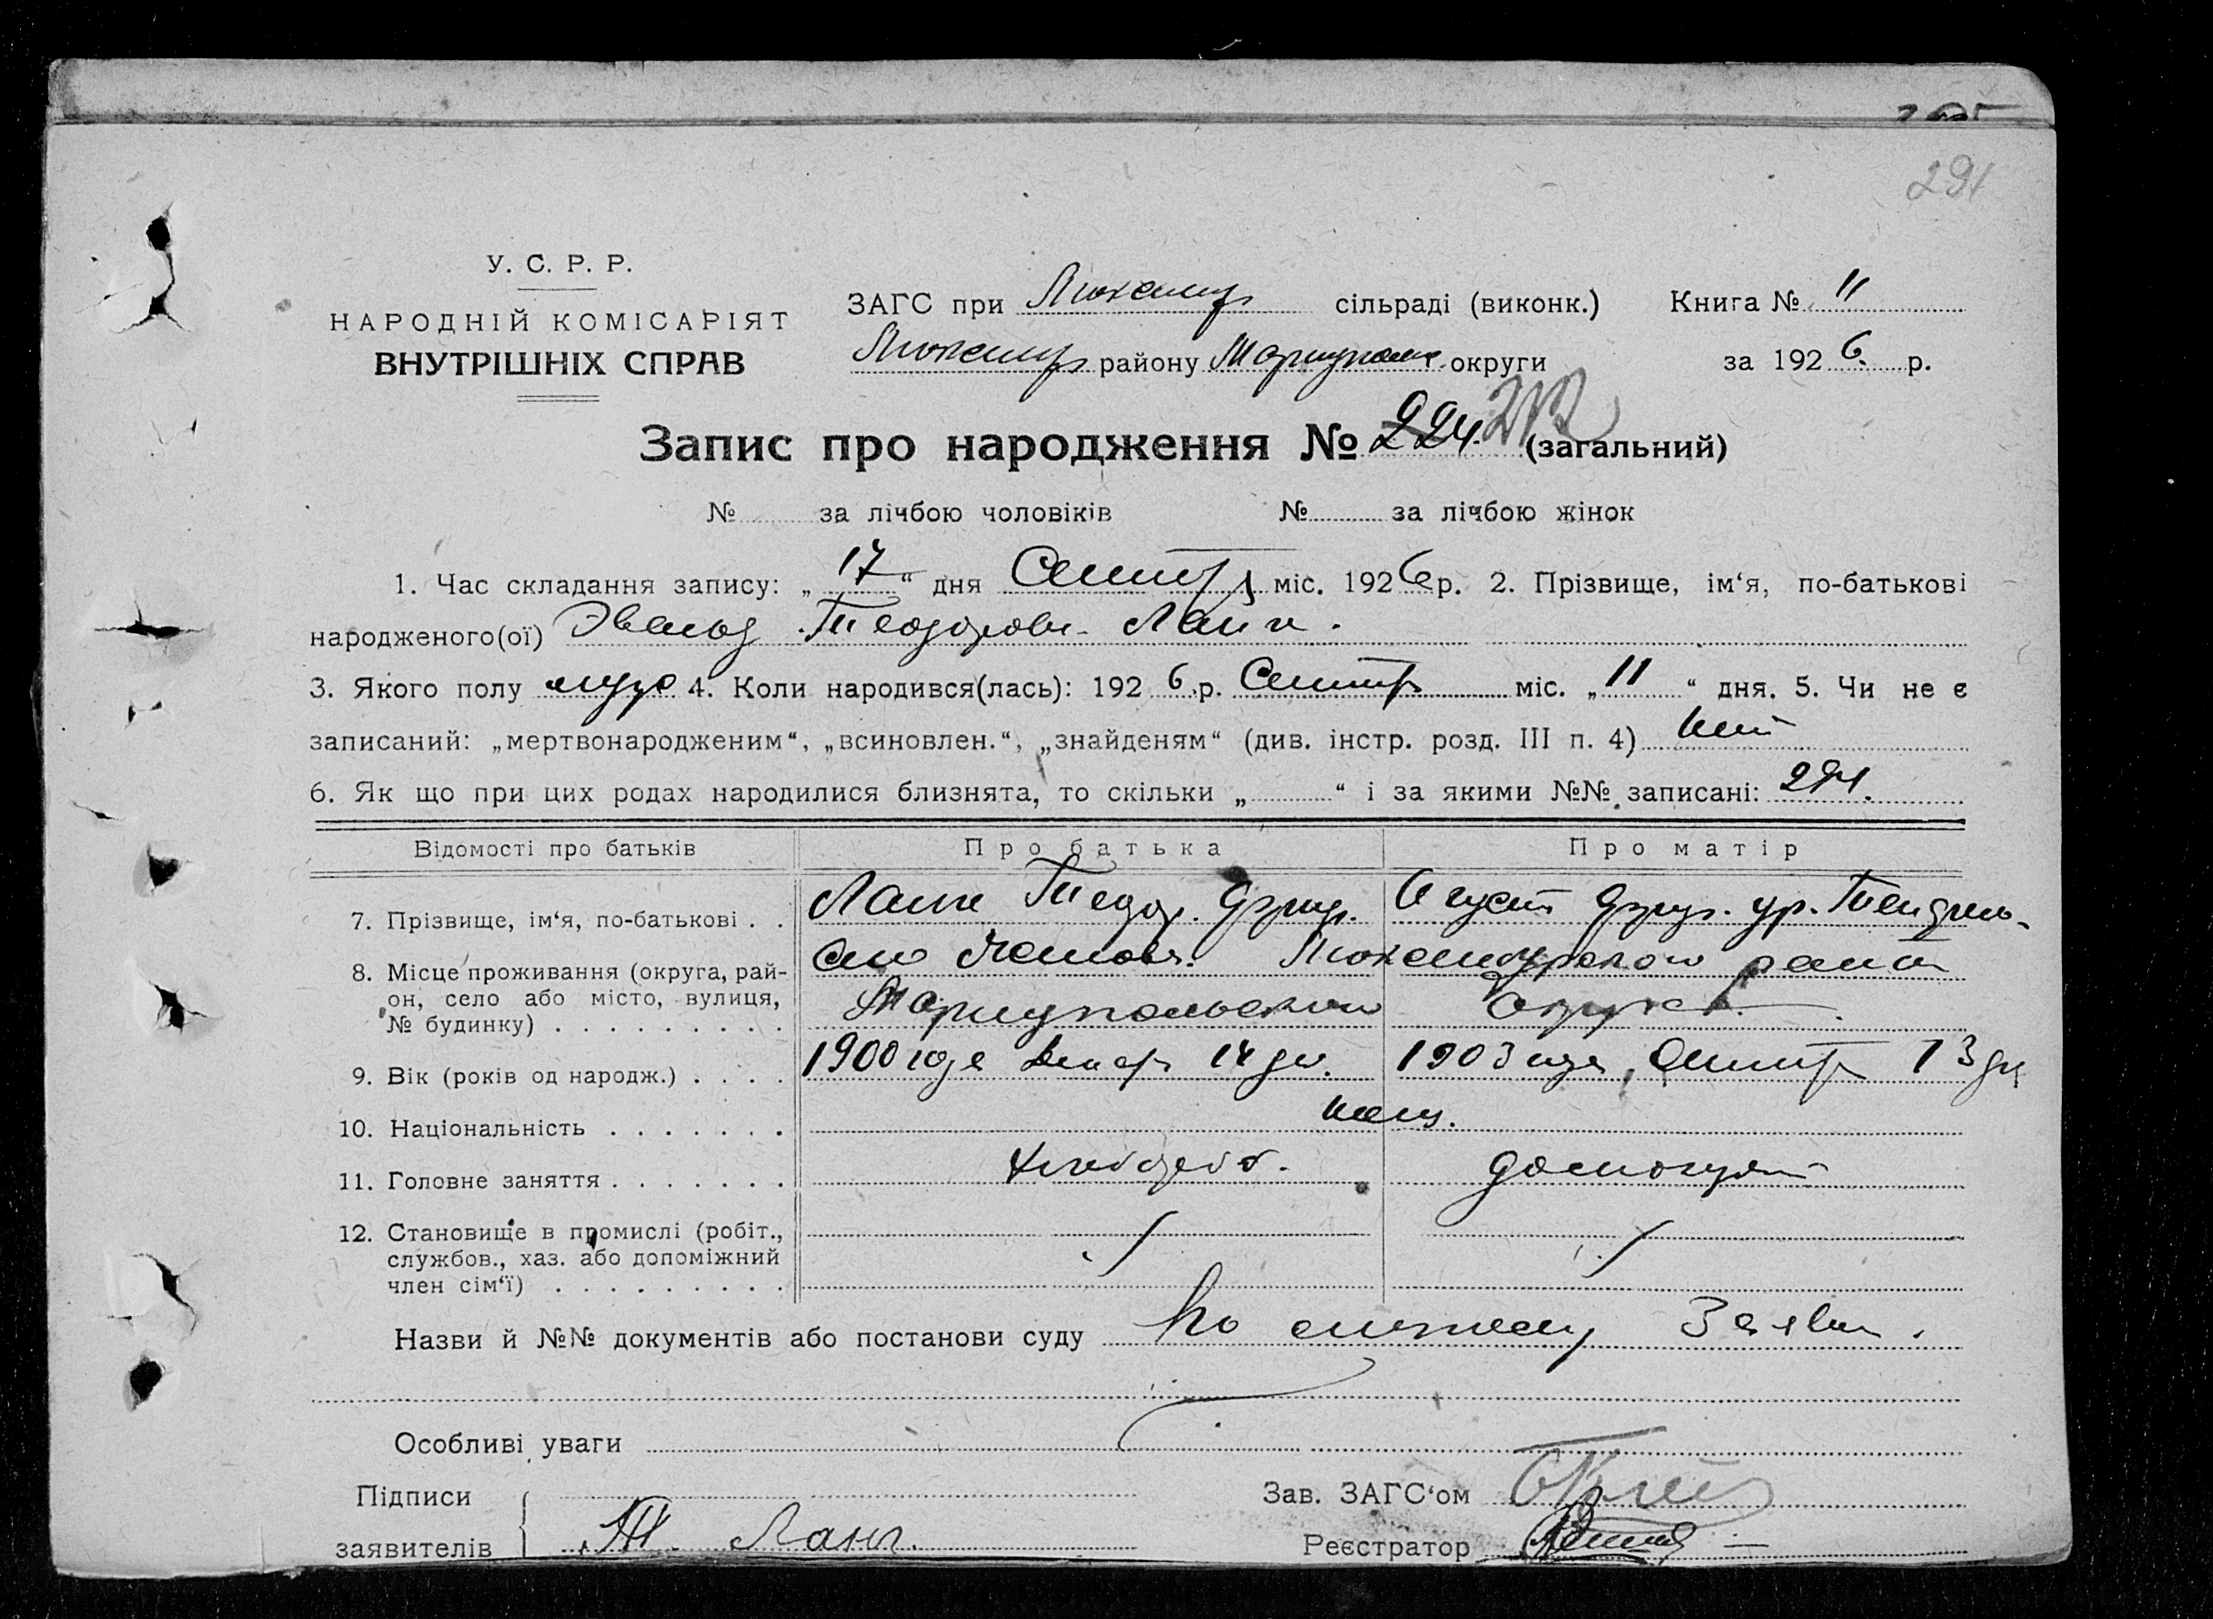 291
У. С. Р. Р.
НАРОДНІЙ КОМІСАРІЯТ
ВНУТРІШНІХ СПРАВ
ЗАГС при Люксембр сільраді (виконк.) Книга № 11
Люксембр району Мариуполь округи за 1926 р.
Запис про народження № 224. 213 (загальний)
№ за лічбою чоловіків № за лічбою жінок
1. Час складання запису: „17“ дня Сентбр міс. 1926 р. 2. Прізвище, ім‘я, по-батькові
народженого(ої) Эвальд Теодоров. Ланг.
3. Якого полу муж 4. Коли народився(лась): 1926 р. Сентбр міс. „11“ дня. 5. Чи не є
записаний: „мертвонародженим“, „всиновлен.“, „знайденям“ (див. інстр. розд. III п. 4) нет
6. Як що при цих родах народилися близнята, то скільки „ “ і за якими №№ записані:
Відомості про батьків Про батька Про матір
7. Прізвище, ім‘я, по-батькові . . Ланг Теодор. Агуст ур.
8. Місце проживання (округа, рай- село Люксембургского район
он, село або місто, вулиця, Мариупольского округа.
№ будинку) . . . . . . . . .
9. Вік (років од народж.) . . . . 1900 года Декабр 14 дн. 1903 года, Сентбр 13 дн
10. Національність . . . . . . . немц.
11. Головне заняття . . . . . . . хлебороб. домохозяй
12. Становище в промислі (робіт.,
службов., хаз. або допоміжний
член сім‘ї) . . . . . . . . .
Назви й №№ документів або постанови суду По личному Заявл.
Особливі уваги
Підписи Зав. ЗАГС‘ом
заявителів Т. Ланг. Реєстратор